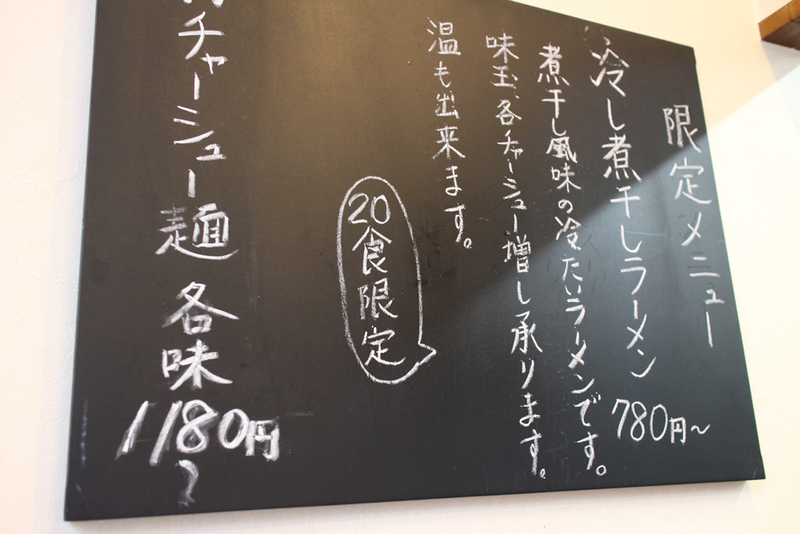 限定メニュー
冷し煮干しラーメン 780円〜
煮干し風味の冷たいラーメンです。
味玉、各チャーシュー増し承ります。
温も出来ます。
20食限定
チャーシュー麺 各味 1180円〜